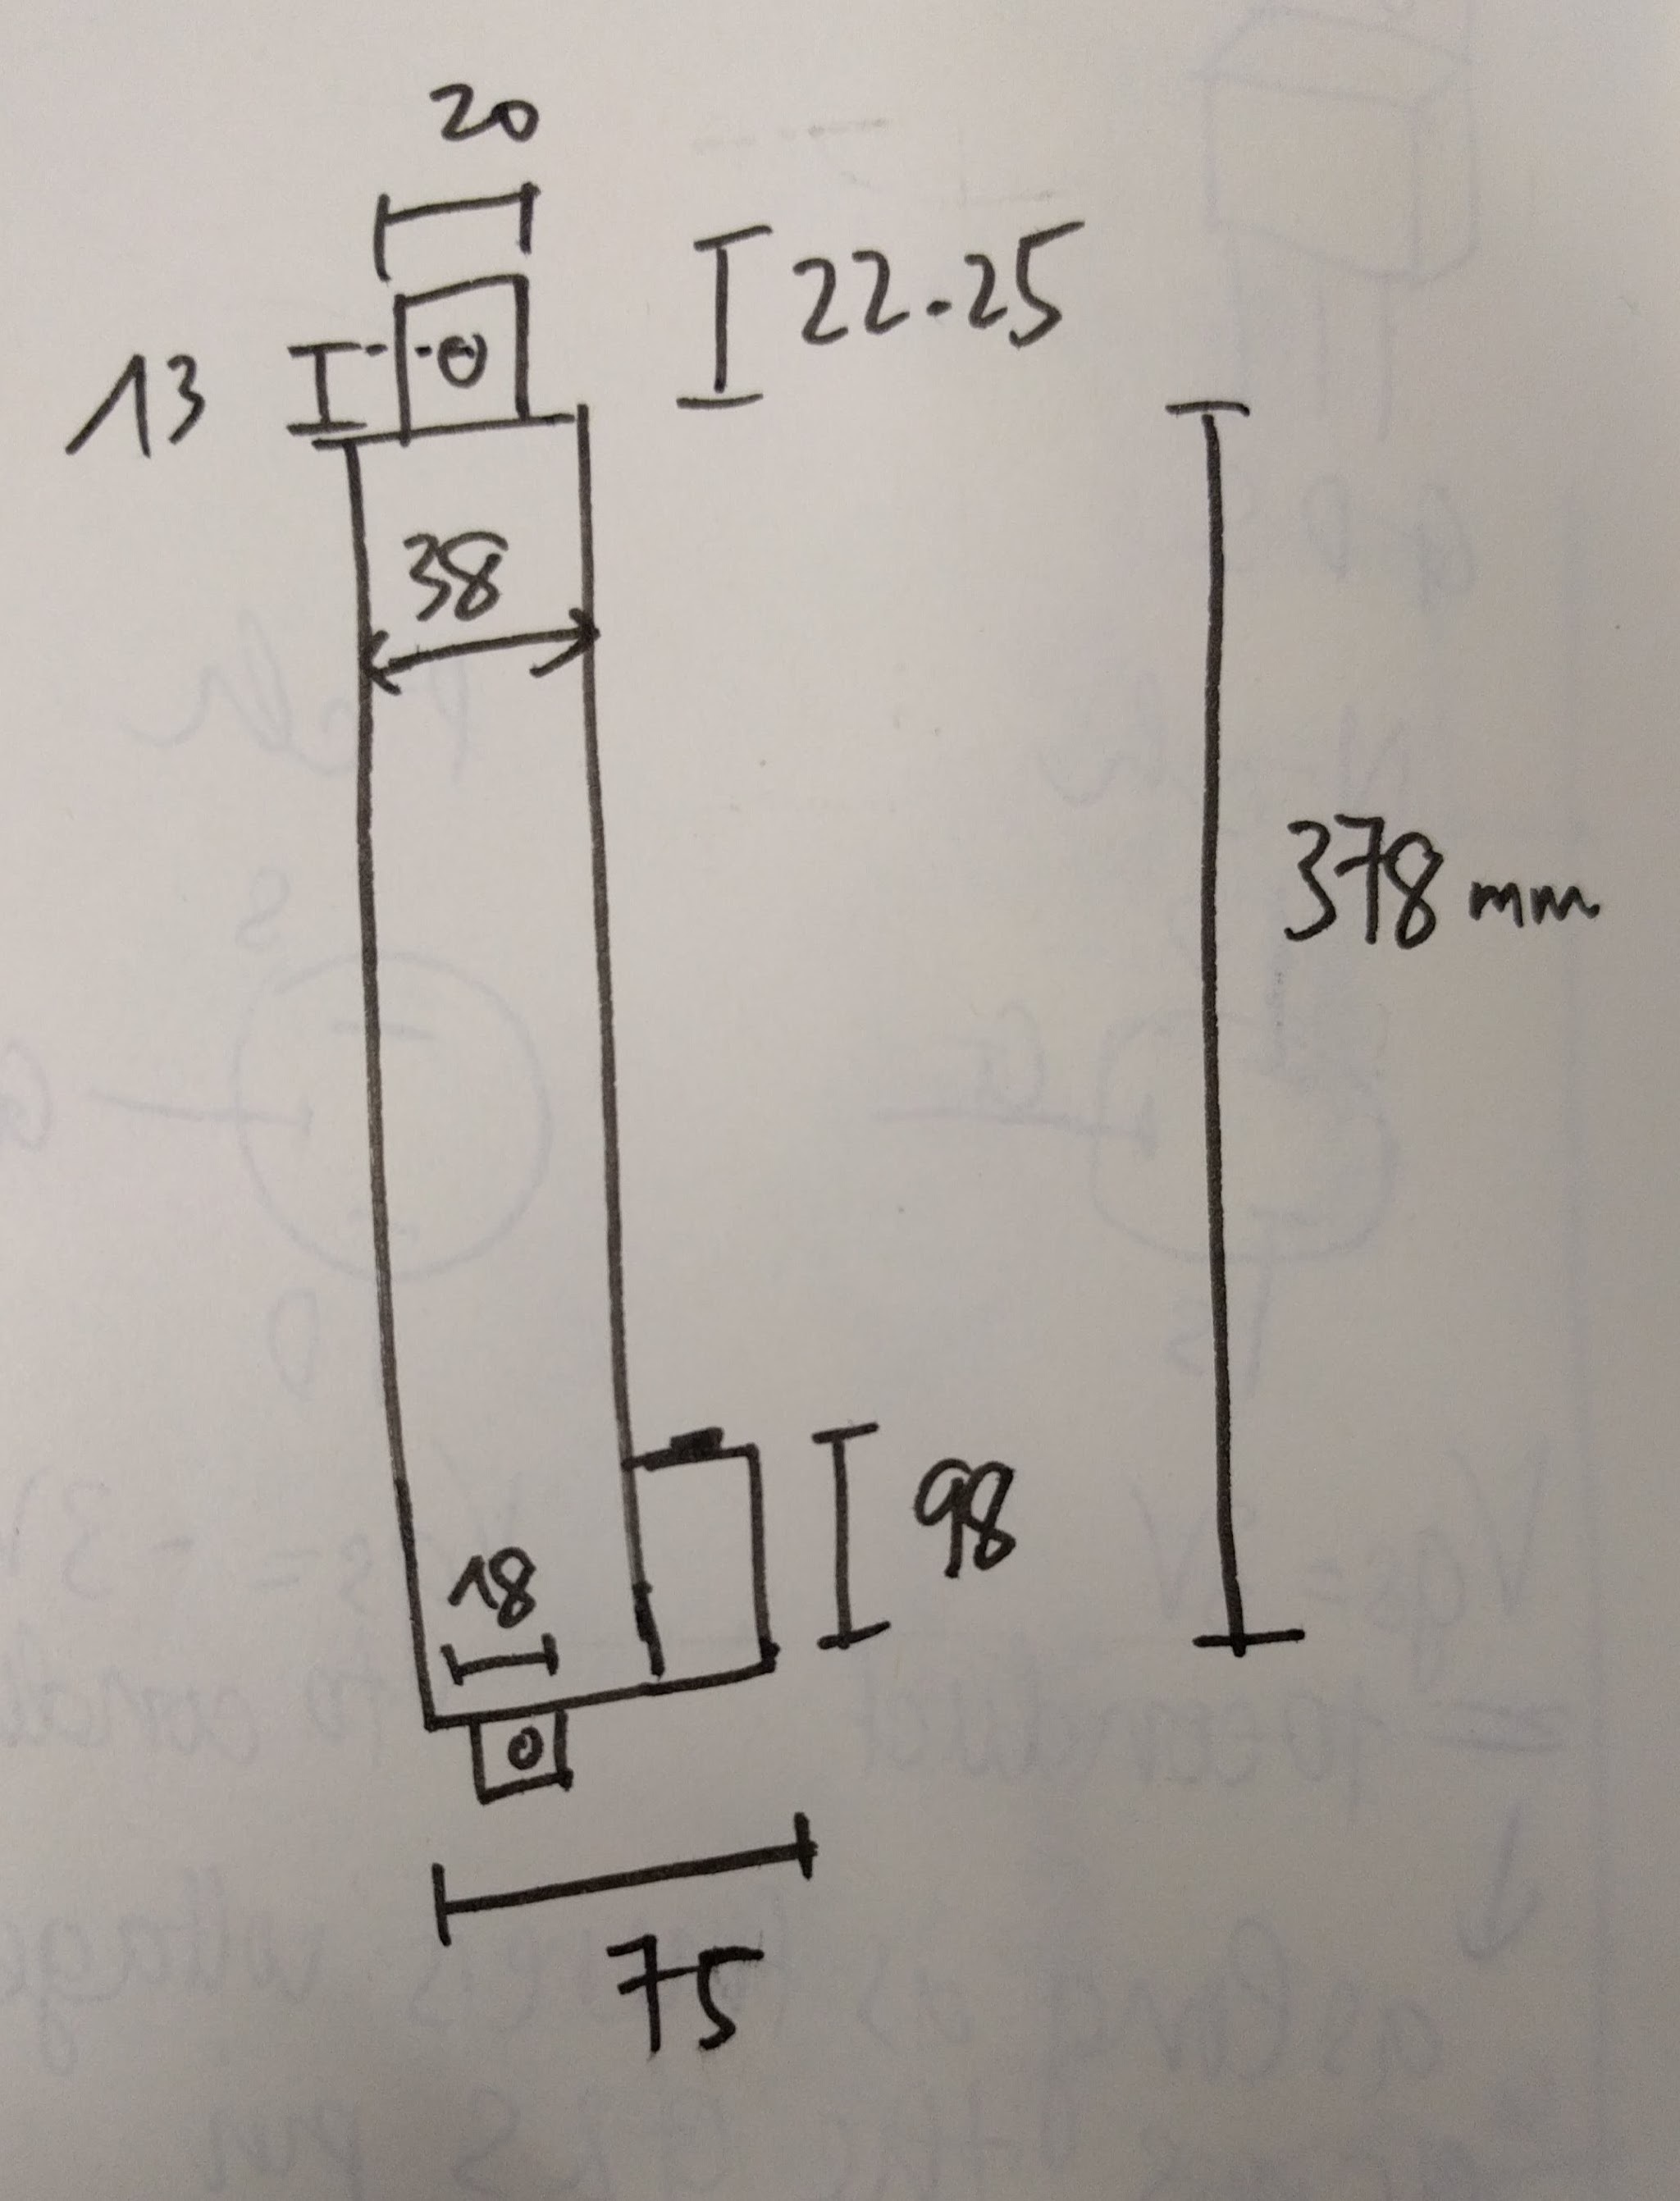 20
22-25
13
38
378 mm
98
18
75